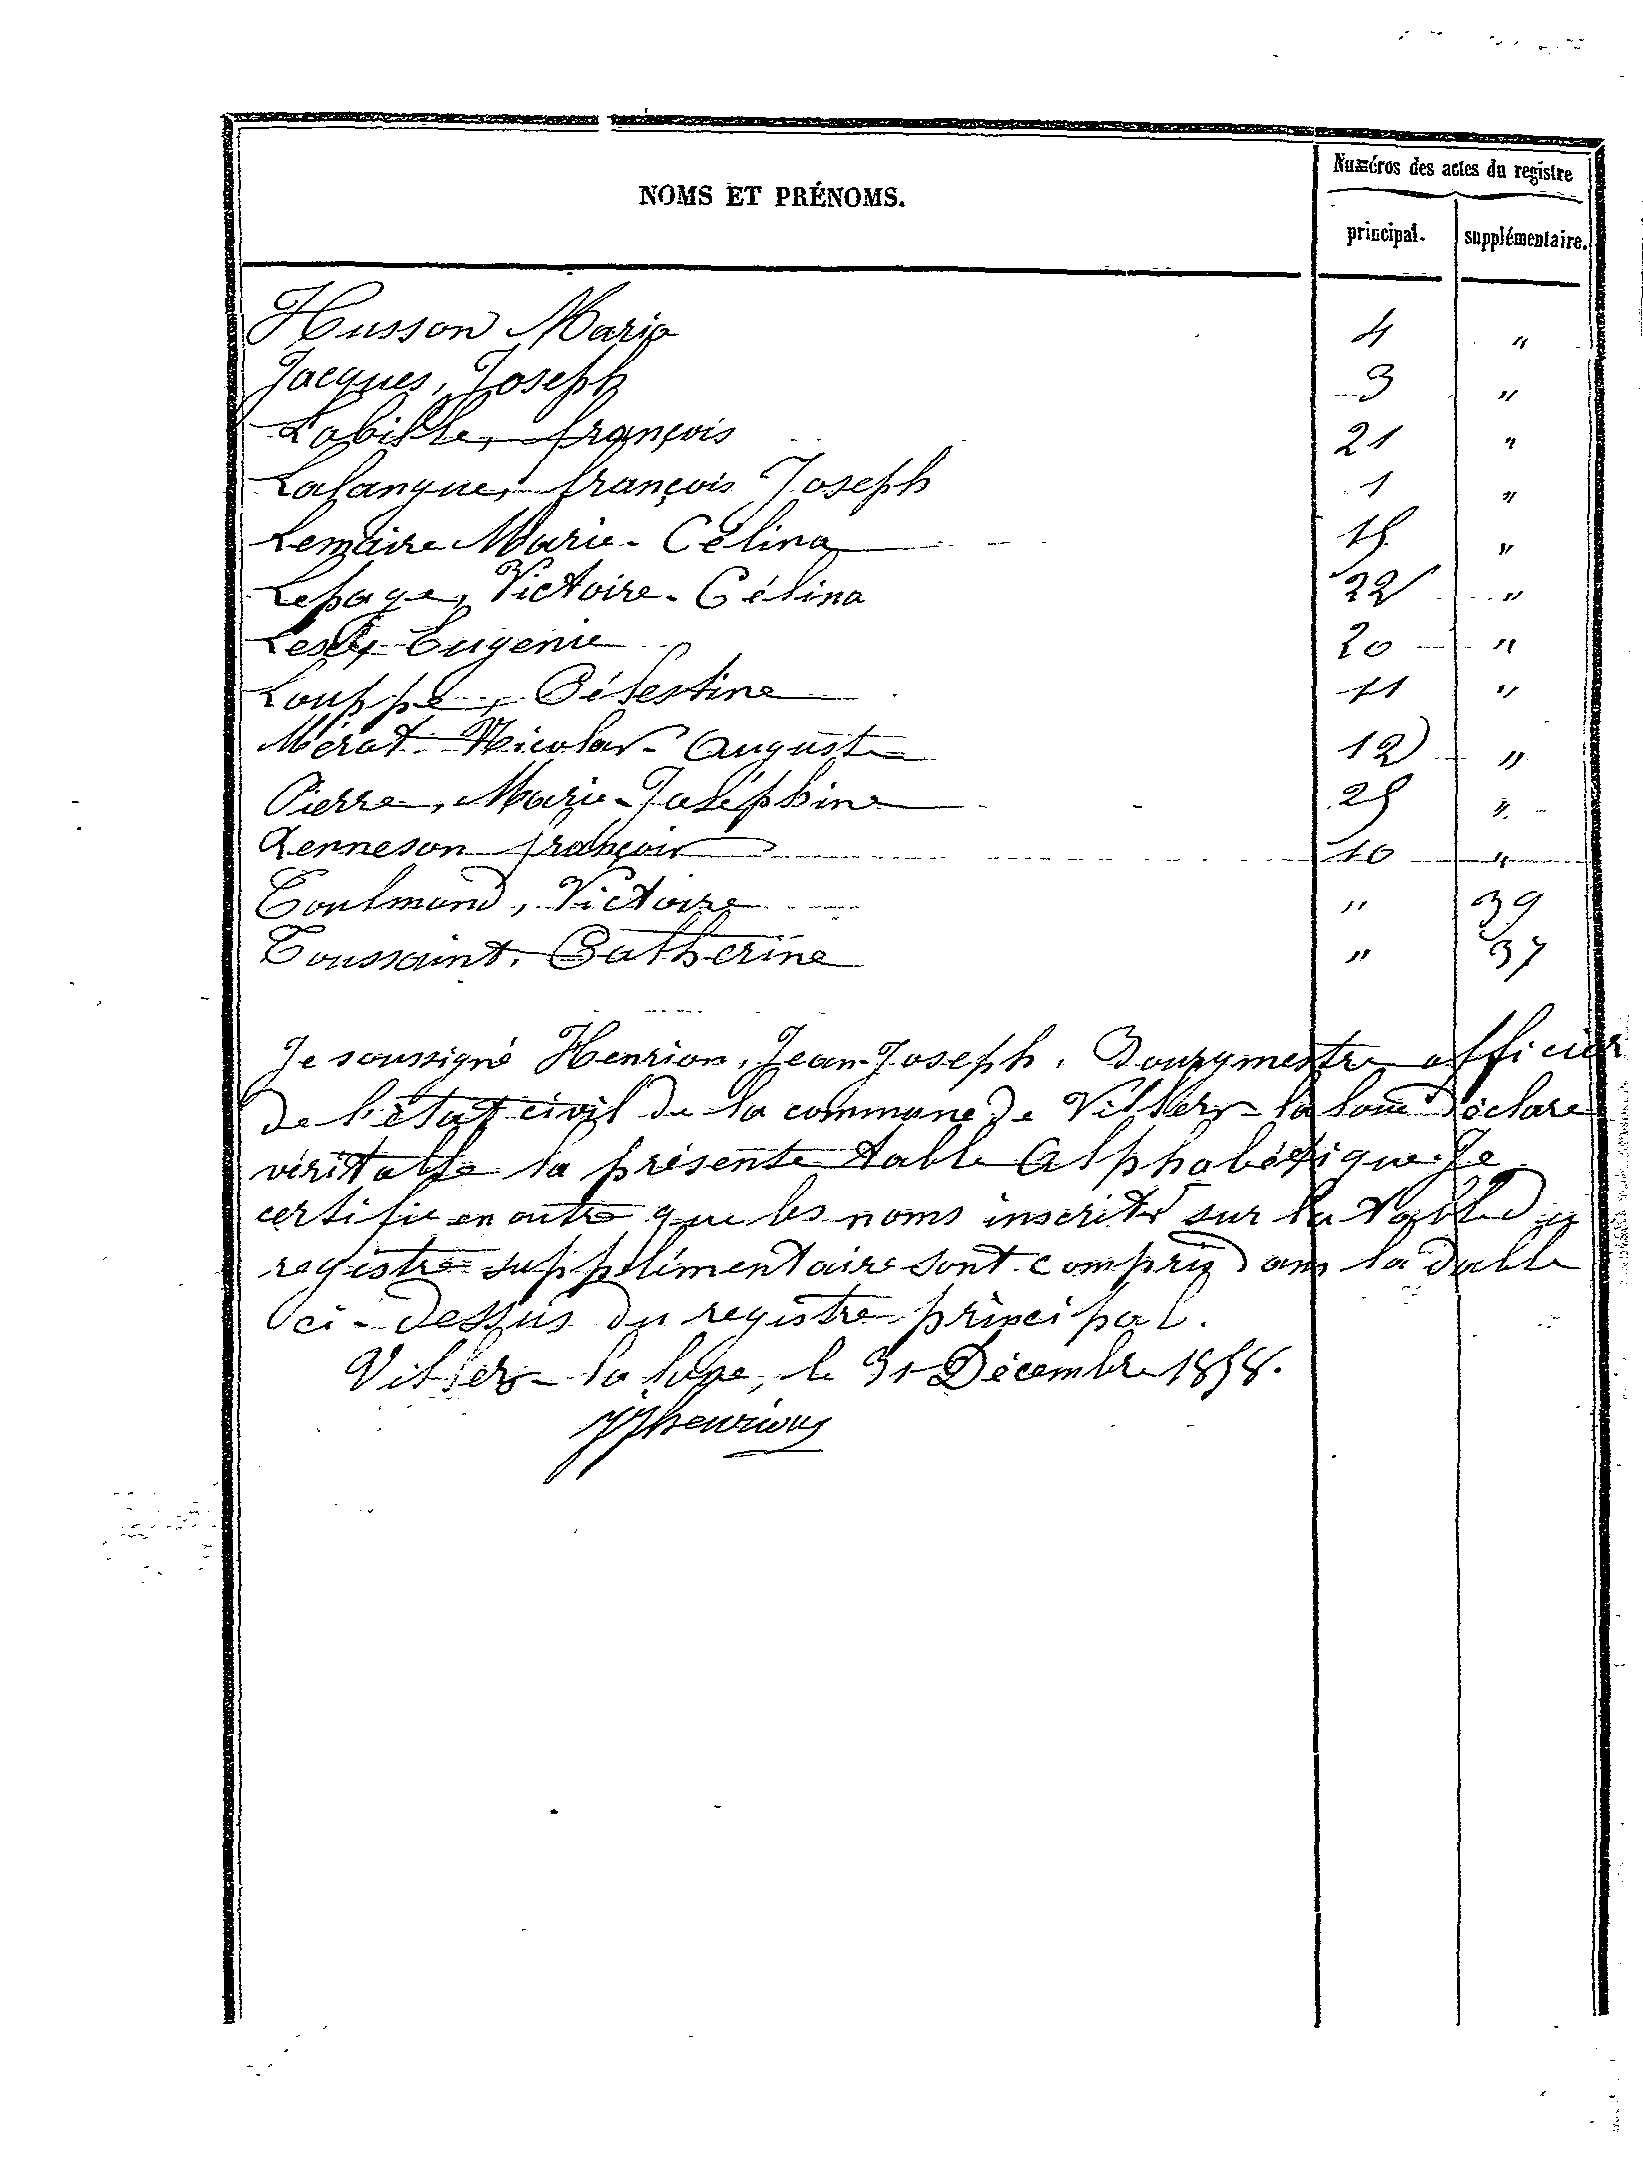 Numéros des actes du registre
NOMS ET PRÉNOMS.
principal. supplémentaire.
Husson Maria 4 "
Jacques, Joseph 3 "
Labille, françois 21 "
Lalangue, françois Joseph 1 "
Lemaire Marie-Célina 15 "
Lepage, Victoire-Célina 22 "
Eugénie 20 "
Louppe, Célestine 11 "
Mérat Nicolas-Auguste 12 "
Pierre, Marie-Joséphine 25 "
Renneson françois 10 "
Toulmond, Victoire " 39
Toussaint, Catherine " 37
Je soussigné Henrion, Jean-Joseph, Bourgmestre officier
de l'état civil de la commune de Villers-la loue déclare
véritable la présente table Alphabétique. Je
certifie en outre que les noms inscrits sur la table du
registre supplémentaire sont compris dans la table
ci-dessus du registre principal.
Villers-la loue, le 31 Décembre 1858.
JJhenrion